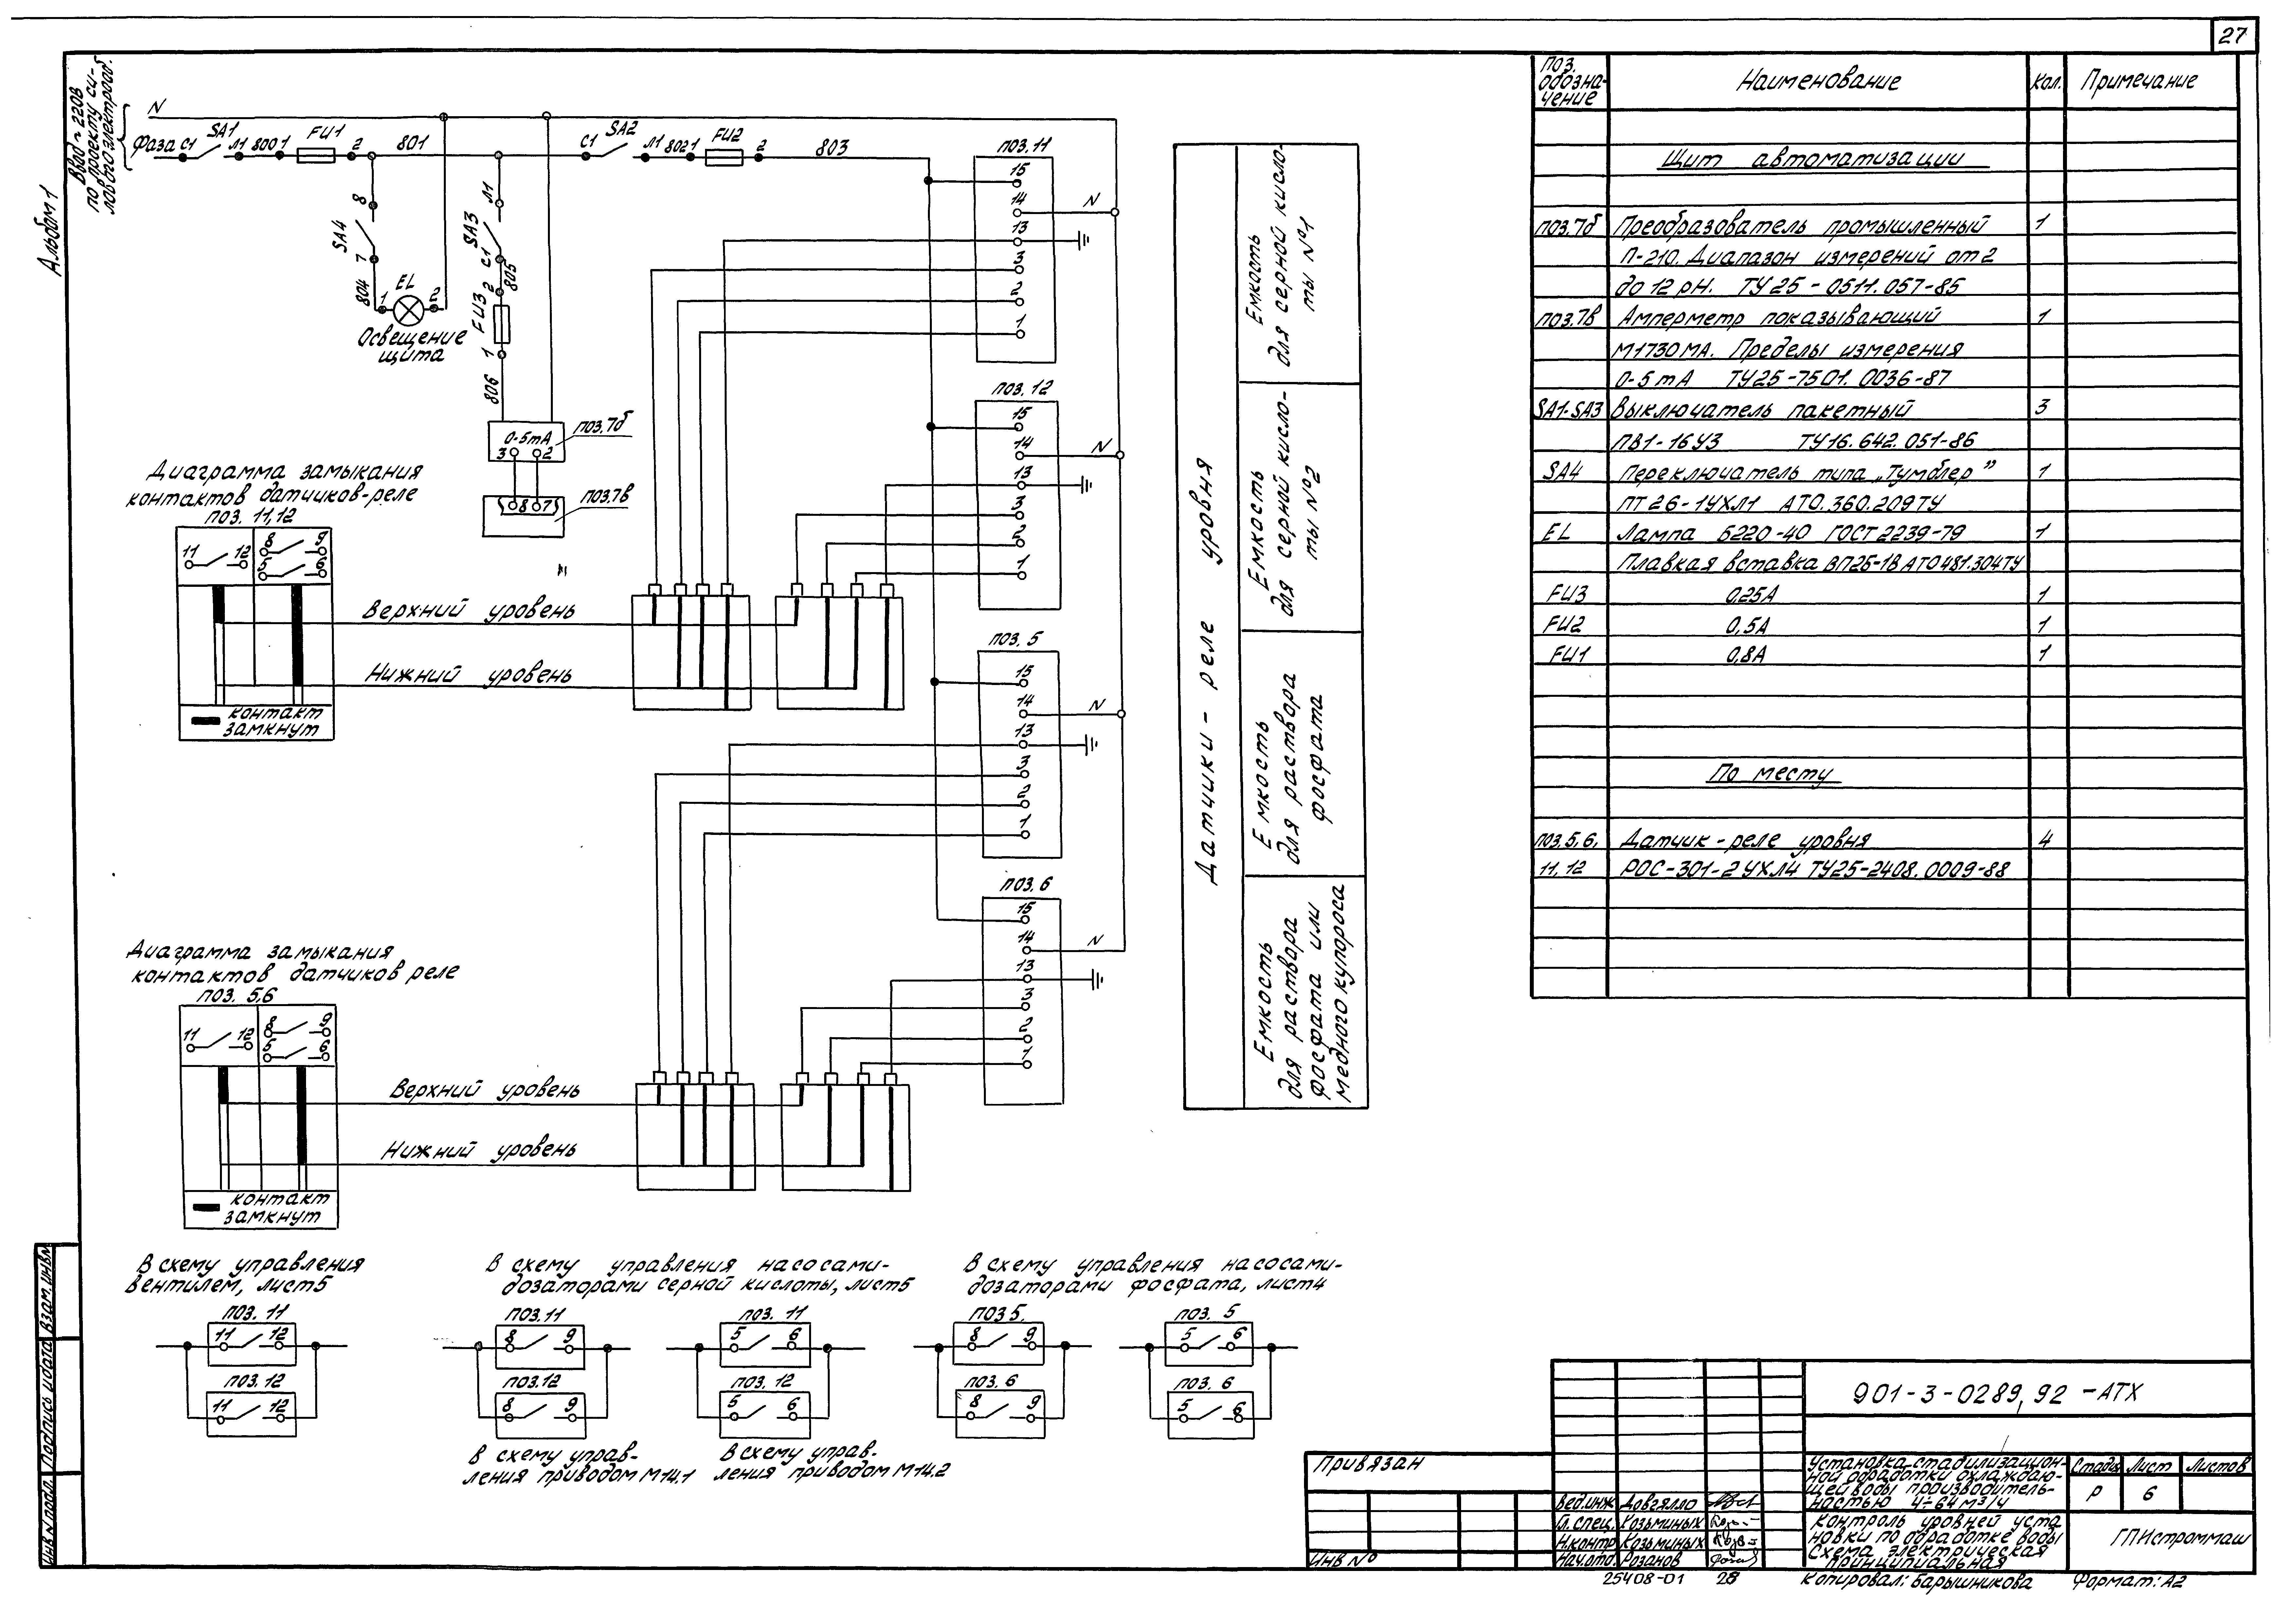 27
Альбом 1
Ввод ~220В
по проекту си-
лового электрооб.
N
Фаза С1 SA1 Л1 800 1 FU1 2 801 С1 SA2 Л1 802 1 FU2 2 803
8 SA4 7 804 1 EL 2
Освещение
щита
Л1 SA3 С1 805 2 FU3 1 806
0-5mA поз.7б
3 2
8 7 поз.7в
поз.11
15
14 N
13
3
2
1
поз.12
15
14 N
13
3
2
1
поз. 5
15
14 N
13
3
2
1
поз. 6
15
14 N
13
3
2
1
Диаграмма замыкания
контактов датчиков-реле
поз. 11,12
11 12 8 9
5 6
Верхний уровень
Нижний уровень
контакт
замкнут
Диаграмма замыкания
контактов датчиков реле
поз. 5,6
11 12 8 9
5 6
Верхний уровень
Нижний уровень
контакт
замкнут
Датчики - реле уровня
Емкость
для серной кисло-
ты №1
Емкость
для серной кисло-
ты №2
Емкость
для раствора
фосфата
Емкость
для раствора
фосфата или
медного купороса
поз. обозна- чение Наименование Кол. Примечание
Щит автоматизации
поз.7б Преобразователь промышленный 1
П-210. Диапазон измерений от 2
до 12 рН. ТУ 25-0511.057-85
поз.7в Амперметр показывающий 1
М1730МА. Пределы измерения
0-5mA ТУ25-7501.0036-87
SA1-SA3 Выключатель пакетный 3
ПВ1-16У3 ТУ16.642.051-86
SA4 Переключатель типа „Тумблер” 1
ПТ26-1УХЛ1 АТО.360.209ТУ
EL Лампа Б220-40 ГОСТ 2239-79 1
Плавкая вставка ВП2Б-1В АТО481.304ТУ
FU3 0,25А 1
FU2 0,5А 1
FU1 0,8А 1
По месту
поз.5,6, Датчик-реле уровня 4
11,12 РОС-301-2УХЛ4 ТУ25-2408.0009-88
В схему управления
вентилем, лист5
поз. 11
11 12
поз. 12
11 12
В схему управления насосами-
дозаторами серной кислоты, лист5
поз.11 поз. 11
8 9 5 6
поз.12 поз. 12
8 9 5 6
В схему управ-
ления приводом М14.1
В схему управ-
ления приводом М14.2
В схему управления насосами-
дозаторами фосфата, лист4
поз 5. поз. 5
8 9 5 6
поз. 6 поз. 6
8 9 5 6
Взам. инв№
Подпись и дата
Инв № подл.
Привязан
Инв №
901-3-0289,92 -АТХ
Установка стабилизацион-
ной обработки охлаждаю-
щей воды производитель-
ностью 4÷64 м³/ч
Стадия Лист Листов
Р 6
Вед.инж. Довгялло
Гл.спец. Козьминых
Н.контр Козьминых
Нач.отд. Розанов
Контроль уровней уста
новки по обработке воды
Схема электрическая
принципиальная
ГПИстроммаш
25408-01 28 Копировал: Барышникова Формат: А2